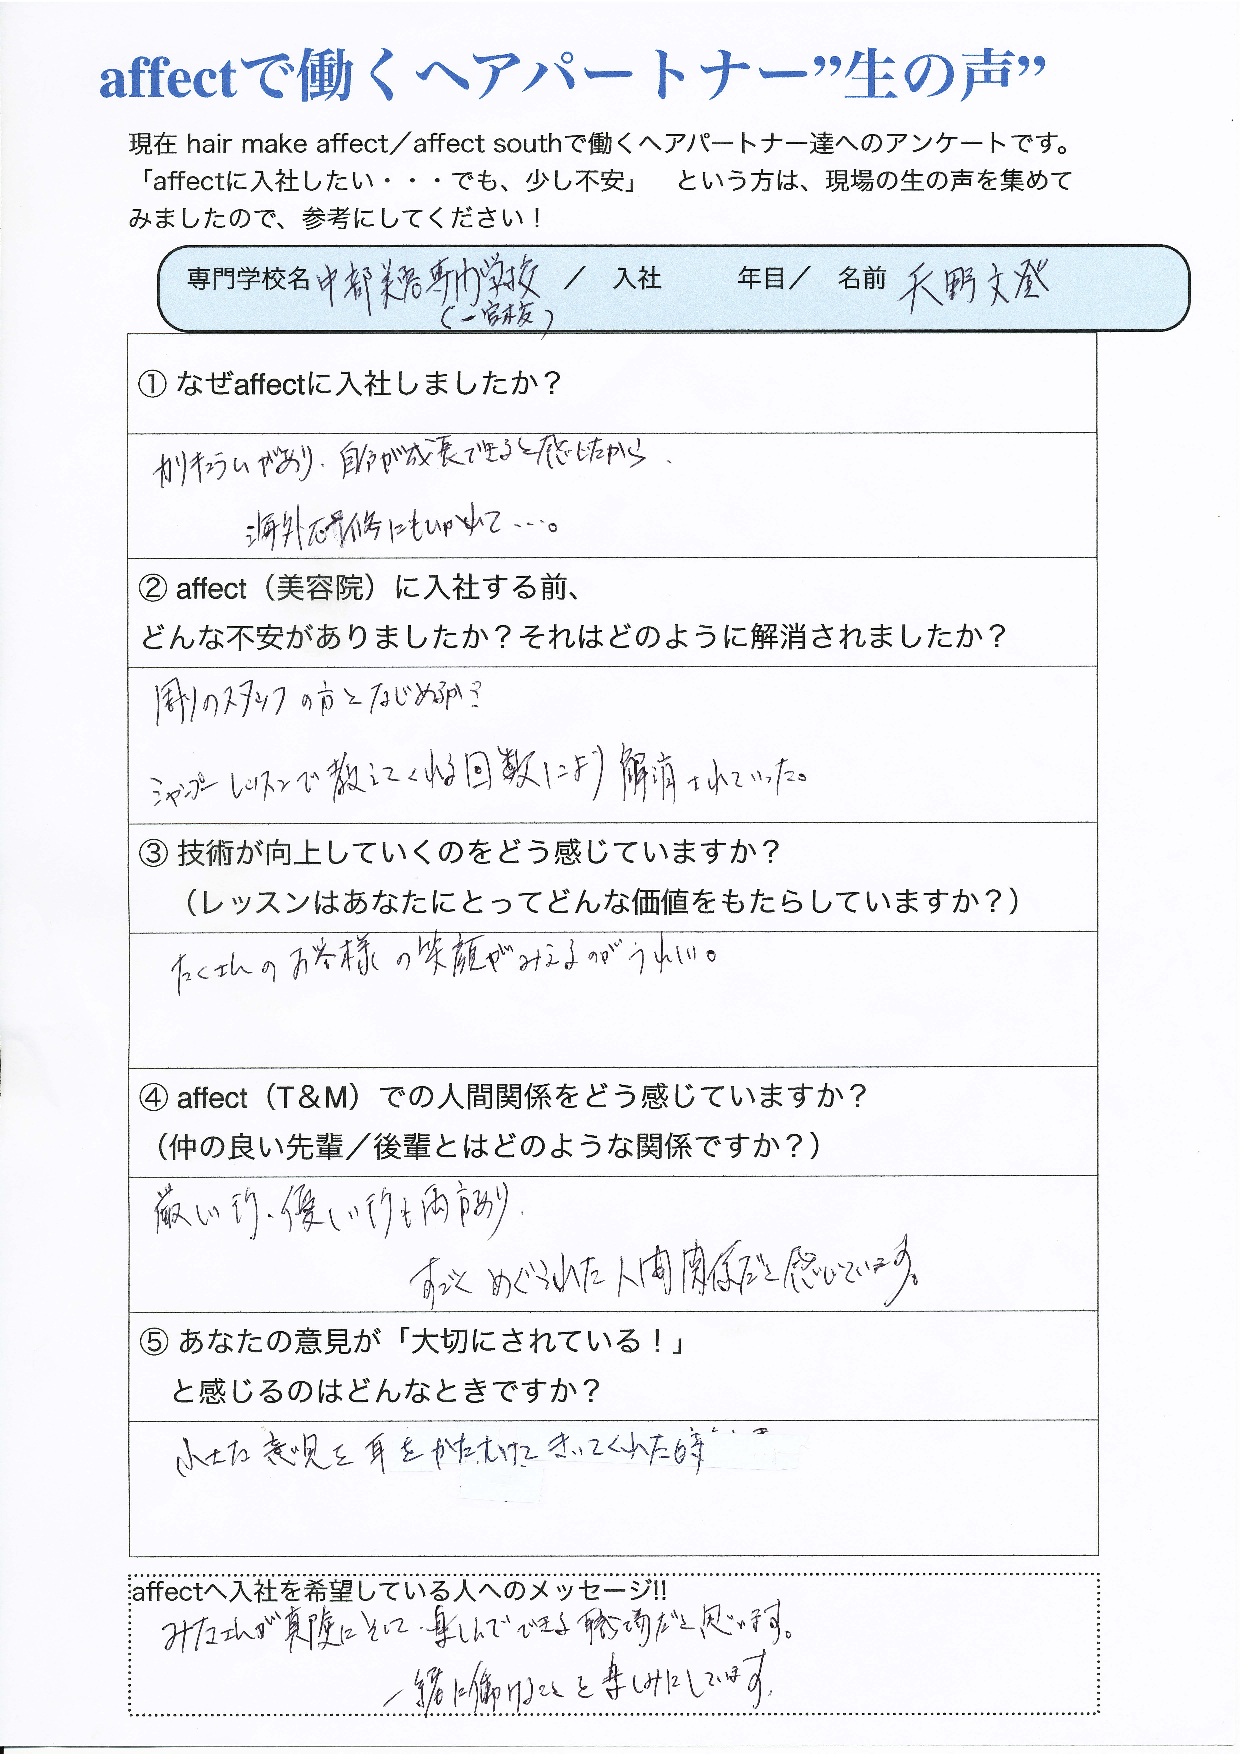 affectで働くヘアパートナー”生の声”
現在 hair make affect／affect southで働くヘアパートナー達へのアンケートです。
「affectに入社したい・・・でも、少し不安」　という方は、現場の生の声を集めて
みましたので、参考にしてください！
専門学校名 中部美容専門学校 ／ 入社　　年目／ 名前 天野文登
(一宮校)
① なぜaffectに入社しましたか？
カリキュラムがあり、自分が成長できると感じたから、
海外研修にもひかれて…。
② affect（美容院）に入社する前、
どんな不安がありましたか？それはどのように解消されましたか？
周りのスタッフの方となじめるか?
シャンプーレッスンで教えてくれる回数により解消されていった。
③ 技術が向上していくのをどう感じていますか？
（レッスンはあなたにとってどんな価値をもたらしていますか？）
たくさんのお客様の笑顔がみえるのがうれしい。
④ affect（T＆M）での人間関係をどう感じていますか？
（仲の良い先輩／後輩とはどのような関係ですか？）
厳しい所、優しい所も両方あり、
すごく めぐまれた人間関係だと感じています。
⑤ あなたの意見が「大切にされている！」
と感じるのはどんなときですか？
意見を 耳をかたむけて きいてくれた時…
affectへ入社を希望している人へのメッセージ!!
みなさんが真険にそして、楽しんでできる職場だと思います。
一緒に働けることを楽しみにしています。